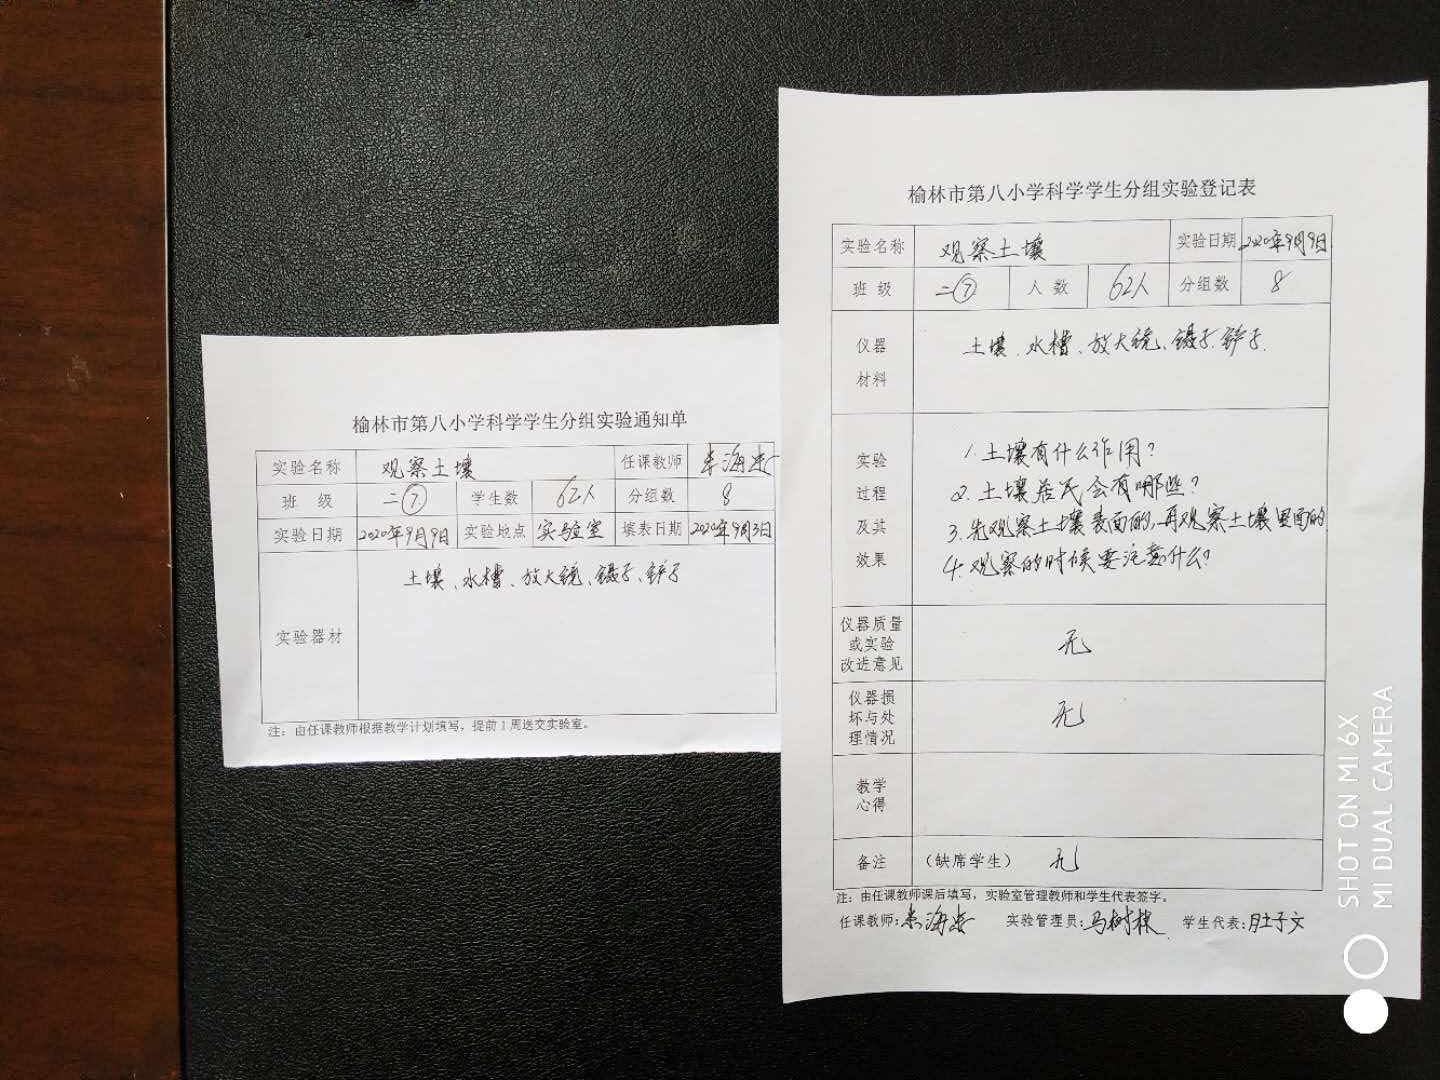 榆林市第八小学科学学生分组实验通知单
实验名称 观察土壤 任课教师
班 级 二⑦ 学生数 62人 分组数 8
实验日期 2020年9月9日 实验地点 实验室 填表日期 2020年9月3日
实验器材 土壤、水槽、放大镜、镊子、铲子
注：由任课教师根据教学计划填写，提前1周送交实验室。
榆林市第八小学科学学生分组实验登记表
实验名称 观察土壤 实验日期 2020年9月9日
班 级 二⑦ 人 数 62人 分组数 8
仪器
材料
土壤、水槽、放大镜、镊子、铲子.
实验
过程
及其
效果
1. 土壤有什么作用？
2. 土壤居民会有哪些？
3. 先观察土壤表面的，再观察土壤里面的
4. 观察的时候要注意什么？
仪器质量
或实验
改进意见
无
仪器损
坏与处
理情况
无
教学
心得
备注 （缺席学生） 无
注：由任课教师课后填写，实验室管理教师和学生代表签字。
任课教师： 实验管理员：马树林 学生代表：
SHOT ON MI 6X
MI DUAL CAMERA